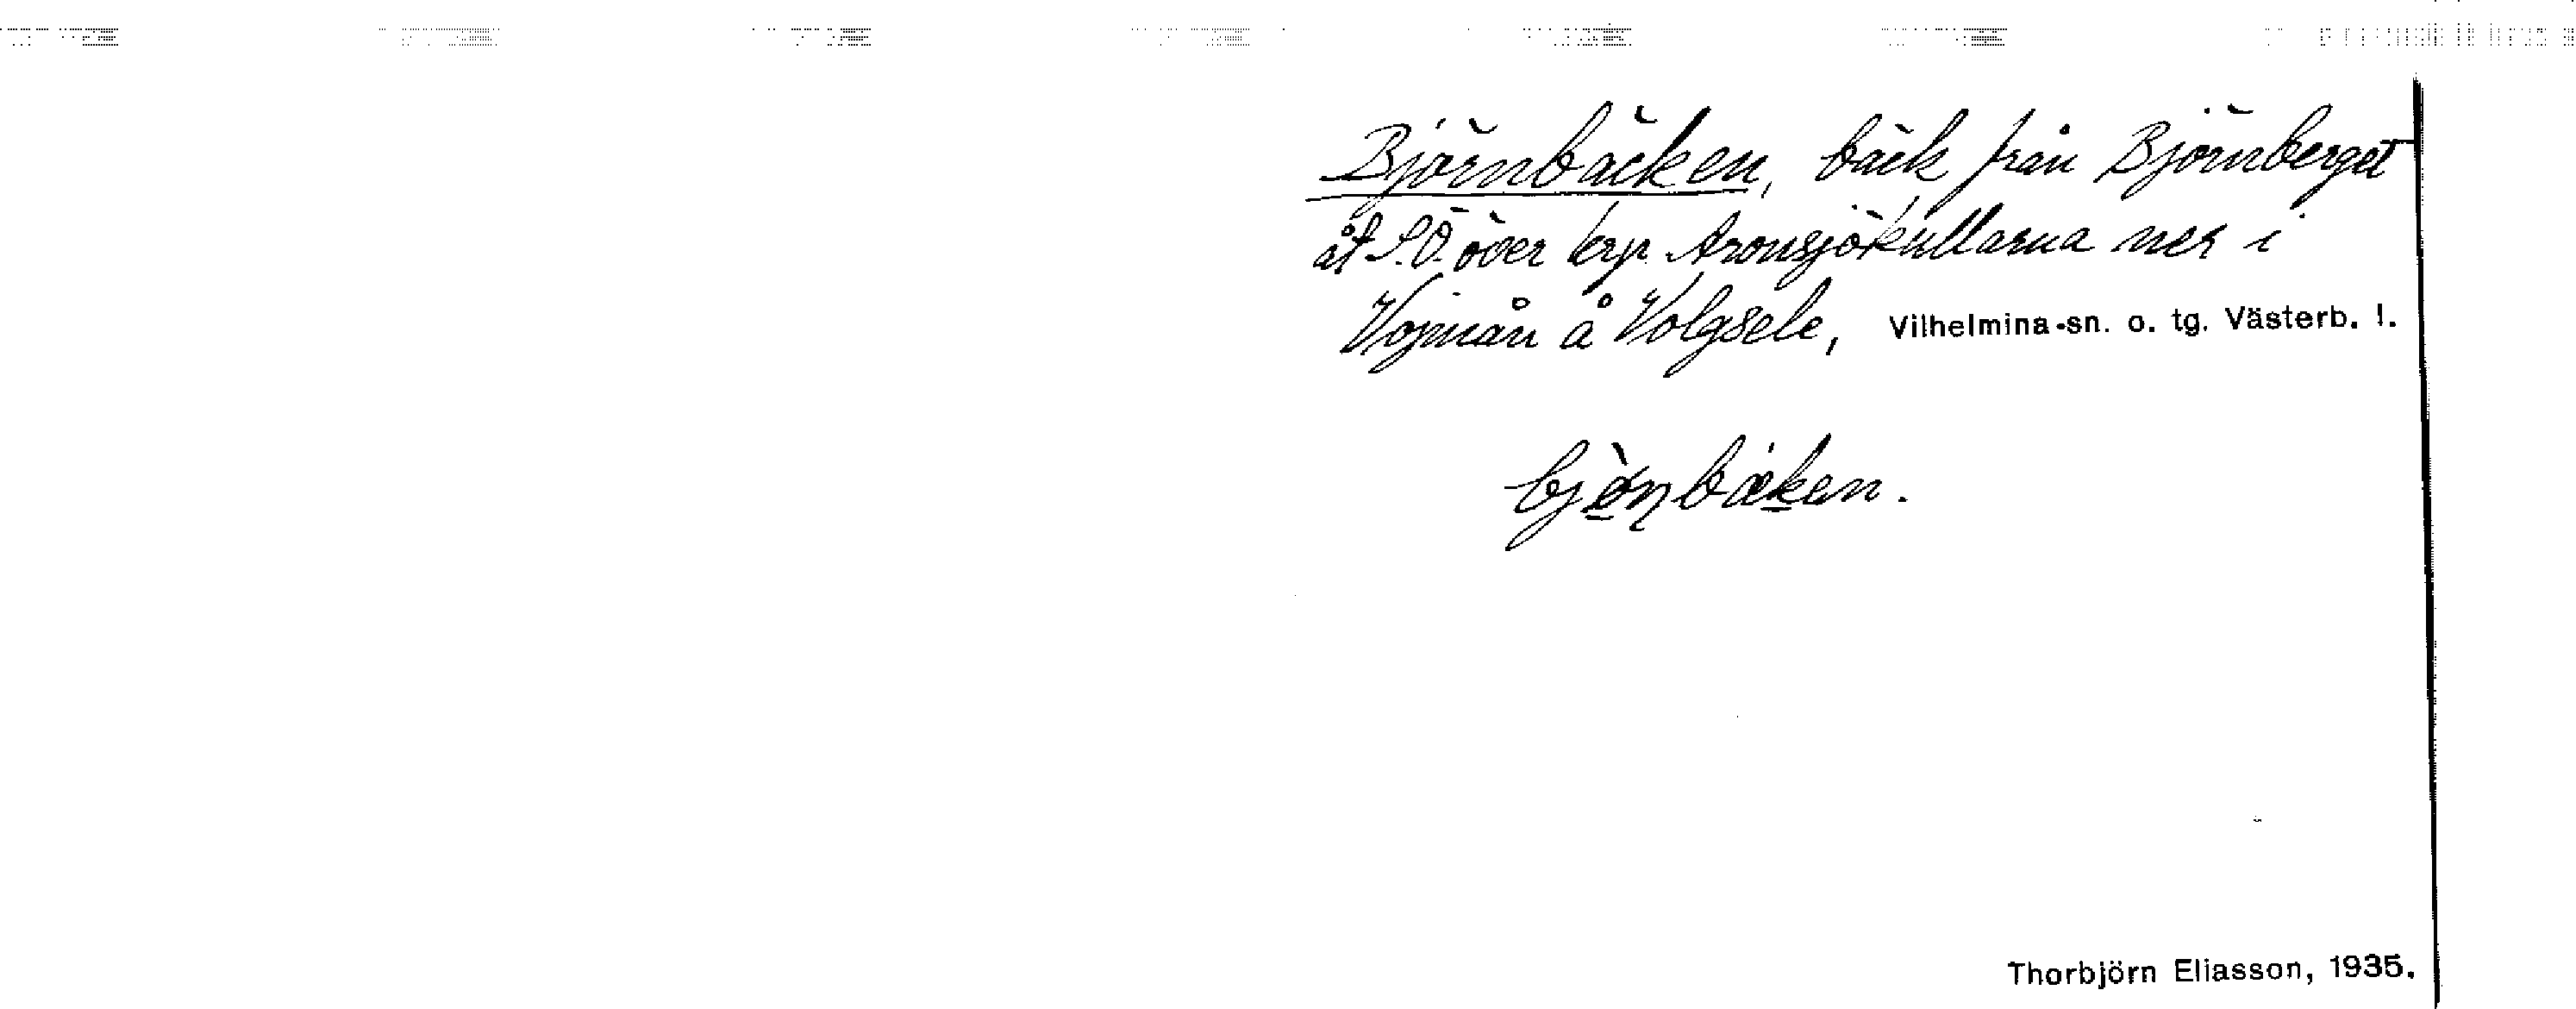 Björnbäcken, bäck från Björnberget
åt S.Ö. över krp. Aronsjökullarna ner i
Vojmån å Volgsele, Vilhelmina-sn. o. tg. Västerb. l.
Thorbjörn Eliasson, 1935.